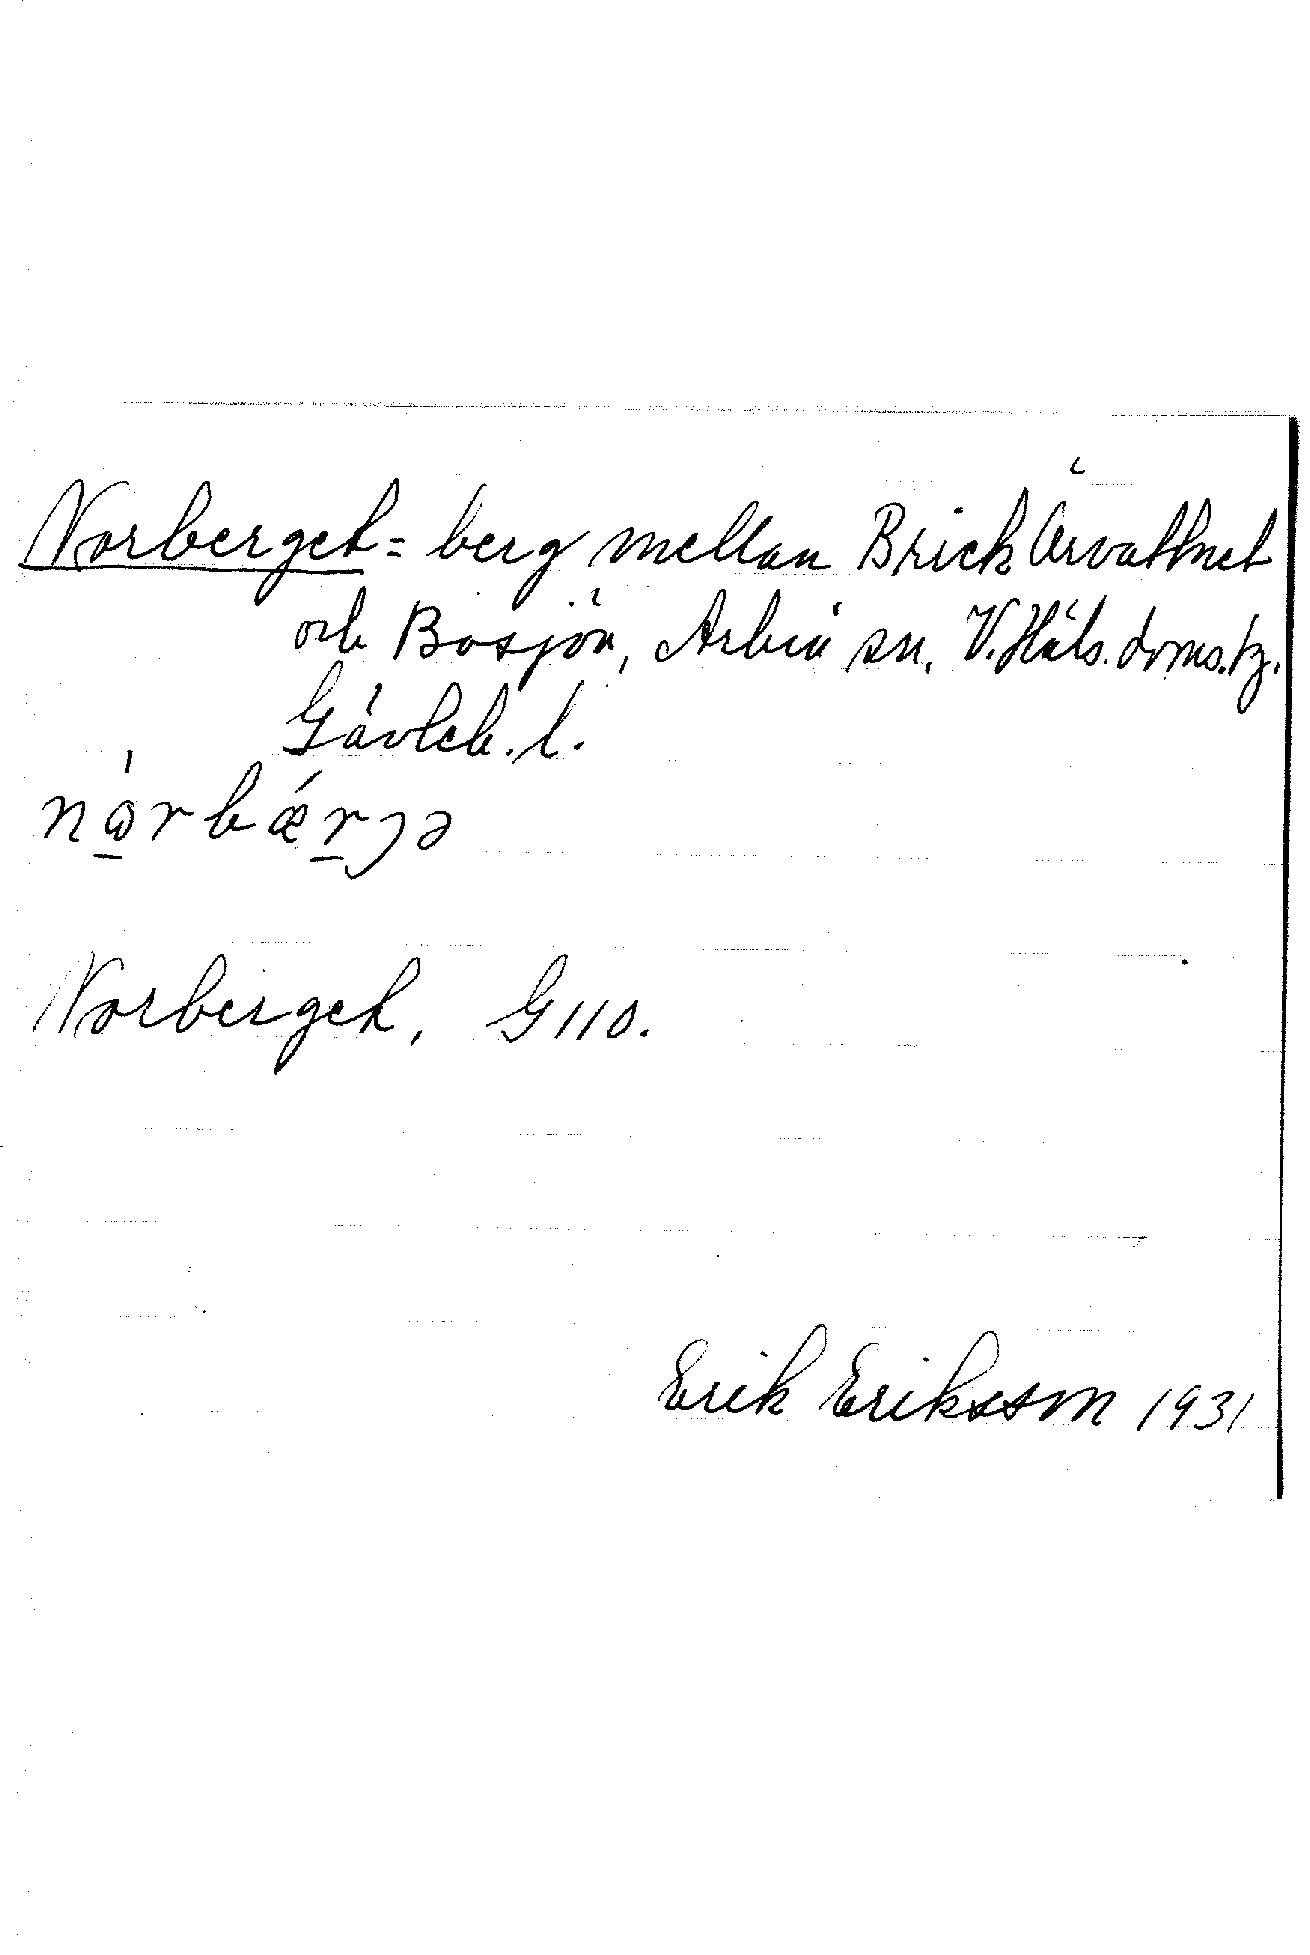 Norberget = berg mellan Brickårvattnet
och Bosjön, Arbrå sn, V. Häls. doms. tg.
Gävleb. l.
nɷ̀rbǽrɟə
Norberget, G 110.
Erik Eriksson 1931